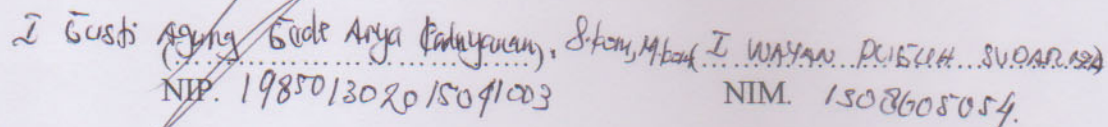 I Gusti Agung Gede Arya Kadnyanan, S.kom, M.kom I WAYAN PUGUH SUDARMA
NIP. 198501302015041003 NIM. 1508605054.